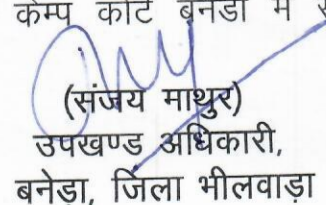 केम्प कोर्ट बनेडा में
(संजय माथुर)
उपखण्ड अधिकारी,
बनेडा, जिला भीलवाडा